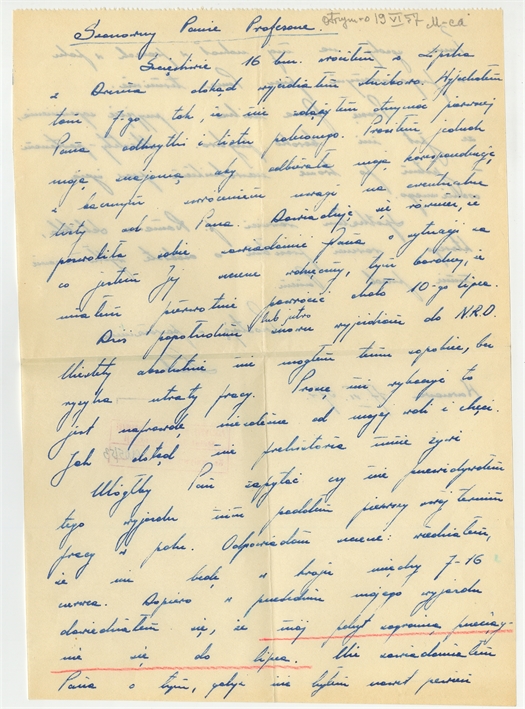 otrzym-o 19 VI 57 M-ca
Szanowny Panie Profesorze.
Szczęśliwie 16 bm. wróciłem z Lipska
i Drezna dokąd wyjechałem służbowo. Wyjechałem
tam 7-go tak, iż nie zdążyłem otrzymać pierwszej
Pana odbitki i listu poleconego. Prosiłem jednak
moją znajomą aby odbierała moją korespondencję
z bacznym zwróceniem uwagi na ewentualne
listy od Pana. Dowiaduję się również, że
pozwoliła sobie zawiadomić Pana o sytuacji za
co jestem Jej szczerze wdzięczny, tym bardziej, iż
miałem pierwotnie powrócić około 10-go lipca.
Dziś popołudniu lub jutro znowu wyjeżdżam do N.R.D.
Niestety absolutnie nie mogłem temu zapobiec, bez
ryzyka utraty pracy. Proszę mi wybaczyć to
jest naprawdę niezależne od mojej woli i chęci.
Jak dotąd nie prehistoria mnie żywi
Mógłby Pan zapytać czy nie przewidywałem
tego wyjazdu nim podałem pierwszy swój termin
pracy w polu. Odpowiadam szczerze: wiedziałem,
że nie będę w kraju między 7-16
czerwca. Dopiero w przeddzień mojego wyjazdu
dowiedziałem się, że mój pobyt zagranicą przeciąg-
nie się do lipca. Nie zawiadomiłem
Pana o tym, gdyż nie byłem nawet pewien